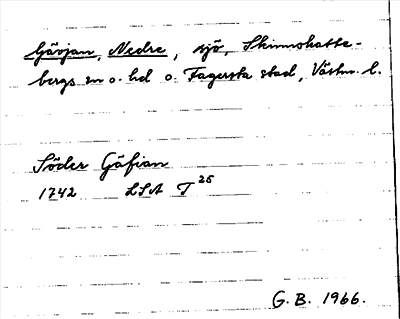 Gävjan, Nedre, sjö, Skinnskatte-
bergs sn o. hd o. Fagersta stad, Västm. l.
Söder Gäfian
1742 LSA T 25
G. B. 1966.